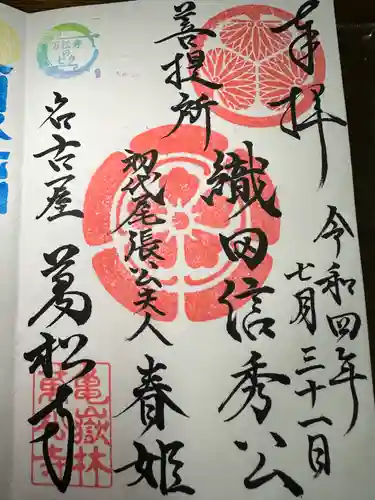 奉拝
令和四年
七月三十一日
菩提所
織田信秀公
初代尾張公夫人
春姫
名古屋
萬松寺
亀嶽林
萬松寺